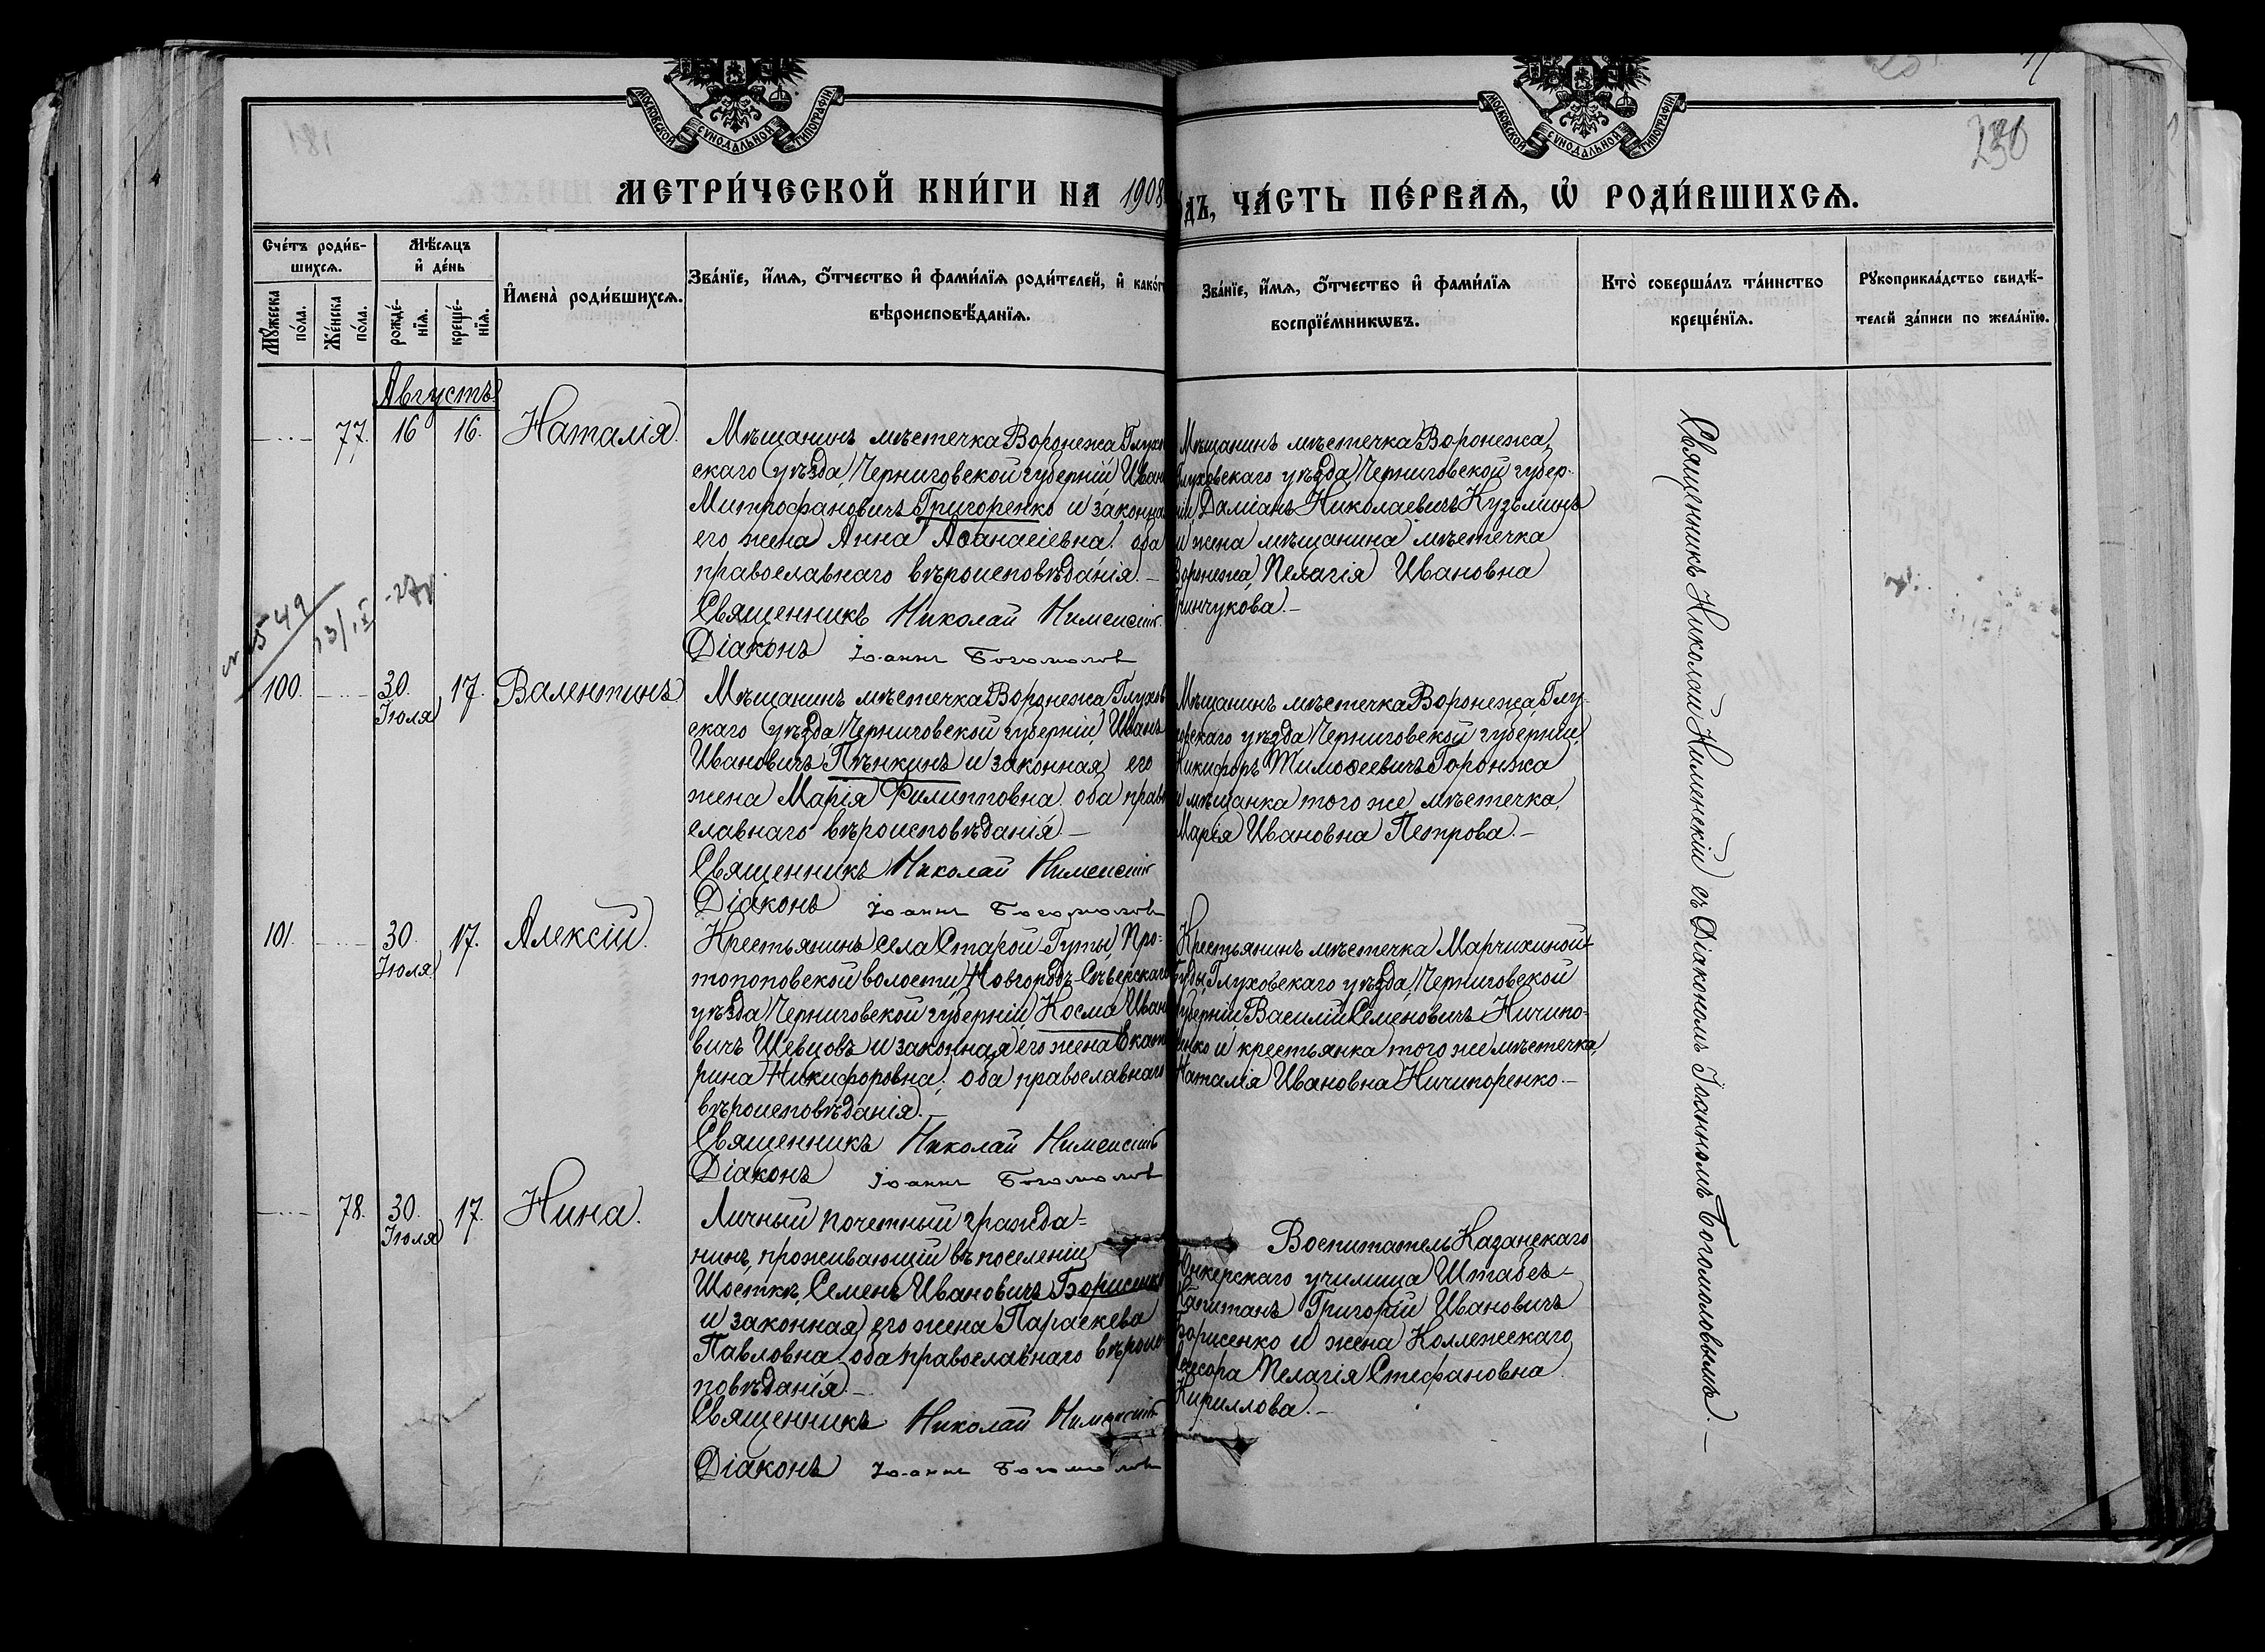 МОСКОВСКОЙ СѴНОДАЛЬНОЙ ТИПОГРАФІИ
МОСКОВСКОЙ СѴНОДАЛЬНОЙ ТИПОГРАФІИ
181
230
МЕТРИ́ЧЕСКОЙ КНИ́ГИ НА 1908
дъ, ЧА́СТЬ ПЕ́РВАѦ, Ѡ РОДИ́ВШИХСѦ.
Сче́тъ роди́в-
шихсѧ.
Мꙋжеска по́ла.
Же́нска по́ла.
Мѣ́сѧцъ
и҆ де́нь
рожде́-
нїѧ.
креще́-
нїѧ.
И҆мена̀ роди́вшихсѧ.
Зва́нїе, и҆́мѧ, ѻ҆́тчество и҆ фами́лїѧ роди́телей, и҆ како́г
вѣроисповѣ́данїѧ.
Зва́нїе, и҆́мѧ, ѻ҆́тчество и҆ фами́лїѧ
воспрїе́мникѡвъ.
Кто̀ соверша́лъ та́инство
креще́нїѧ.
Рꙋкоприкла́дство свидѣ́-
телей за́писи по жела́нїю.
Августъ
77. 16 16. Наталія.
Мѣщанинъ мѣстечка Воронежа Глухов
скаго уѣзда, Черниговской губерніи Иванъ
Митрофановичъ Григоренко и законная
его жена Анна Аѳанасіевна, оба
православнаго вѣроисповѣданія.—
Священникъ Николай
Діаконъ Іоаннъ Богомолов
Мѣщанинъ мѣстечка Воронежа,
Глуховскаго уѣзда, Черниговской губер-
ніи, Даміанъ Николаевичъ Кузьминъ
и жена мѣщанина мѣстечка
Воронежа, Пелагія Ивановна
Гринчукова.—
№ 549
13/IX
100. 30. Іюля 17. Валентинъ
Мѣщанинъ мѣстечка Воронежа, Глухов
скаго уѣзда Черниговской губерніи, Иванъ
Ивановичъ Пѣнкинъ и законная его
жена Марія Филипповна, оба право
славнаго вѣроисповѣданія.—
Священникъ Николай
Діаконъ Іоаннъ Богомолов
Мѣщанинъ мѣстечка Воронежа, Глу-
ховскаго уѣзда Черниговской губерніи,
Никифоръ Тимоѳеевичъ Горонжа
и мѣщанка того же мѣстечка,
Марія Ивановна Петрова.—
101. 30. Іюля 17. Алексій.
Крестьянинъ села Старой Гуты, Про-
топоповской волости, Новгородъ-Сѣверскаго
уѣзда Черниговской губерніи, Косма Ивано
вичъ Шевцовъ и законная его жена Екате
рина Никифоровна, оба православнаго
вѣроисповѣданія.—
Священникъ Николай
Діаконъ Іоаннъ Богомолов
Крестьянинъ мѣстечка Марчихиной-
Буды, Глуховскаго уѣзда, Черниговской
губерніи, Василій Семеновичъ Ничипо-
ренко и крестьянка того же мѣстечка,
Наталія Ивановна Ничипоренко.—
78. 30. Іюля 17. Нина.
Личный почетный гражда-
нинъ, проживающій въ поселеніи
Шосткѣ, Семенъ Ивановичъ Борисенко
и законная его жена Параскева
Павловна, оба православнаго вѣроис
повѣданія.—
Священникъ Николай
Діаконъ Іоаннъ Богомолов
Воспитатель Казанскаго
Юнкерскаго училища Штабсъ-
Капитанъ Григорій Ивановичъ
Борисенко и жена Коллежскаго
Ассесора Пелагія Стефановна
Кириллова.—
Священникъ Николай съ Діакономъ Іоанномъ Богомоловымъ.—